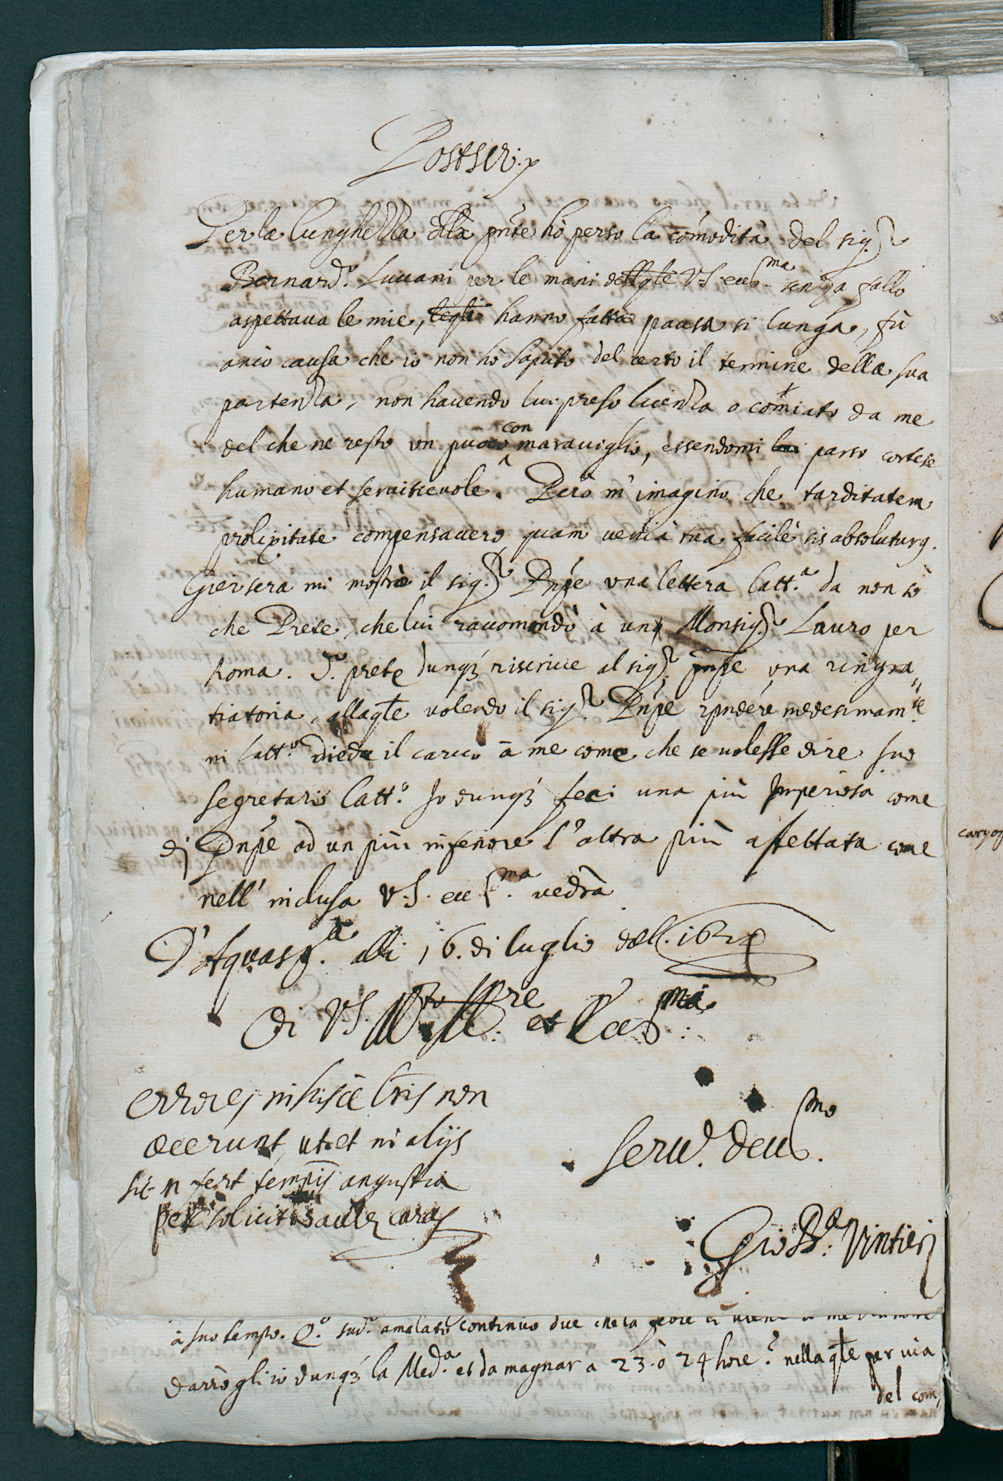 Postscr:
Per la lunghezza della pnte hò perso la comodità del sig.r
Bernard.o Luuani per le mani dell qle V.S. ecc.ma senza fallo
aspettaua le mie, hanno fatta pausa si lunga, fù
anco causa che io non hò saputo del certo il termine della sua
partenza, non hauendo lui preso licenza o comiato da me
del che ne resto un puoco con marauiglio, essendomi parso cortese
humano et seruiceuole. Però m'imagino che tarditatem
prolixitate compensauero quam uenia tua facilè sis absoluturq.
Giersera mi mostrò il sig.r Pnpe una lettera latt.a da non sò
che Prete, che lui racomandò à un Monsig.r Lauro per
Roma. d.o prete dunq riscriue al sig.r pnpe una ringra
tiatoria, allaqle uolendo il sig.r Pnpe rpndere medesimam.te
in latt.o diede il carico à me come che se uolesse dire suo
segretario latt.o Io dunq feci una più Imperiosa come
di Pnpe ad un più inferiore l'altra più affettata come
nell' inclusa V.S. ecc.ma uedrà
D'Aquasp.ta alli 16. di luglio dell. 162
Di V.S. Ill.re et Ecc.ma
errores in hisce lris non
deerunt, ut et in alijs
sic n fert tempis angustia
per solicitas aulę curas
seru.e deu.mo
Gio Ba. Vintieri
à suo tempo. Q.o sud.o amalato continuo due
darrògli io dunq la Med.a et da magnar a 23. ò 24 hore. nella qle per uia
del com